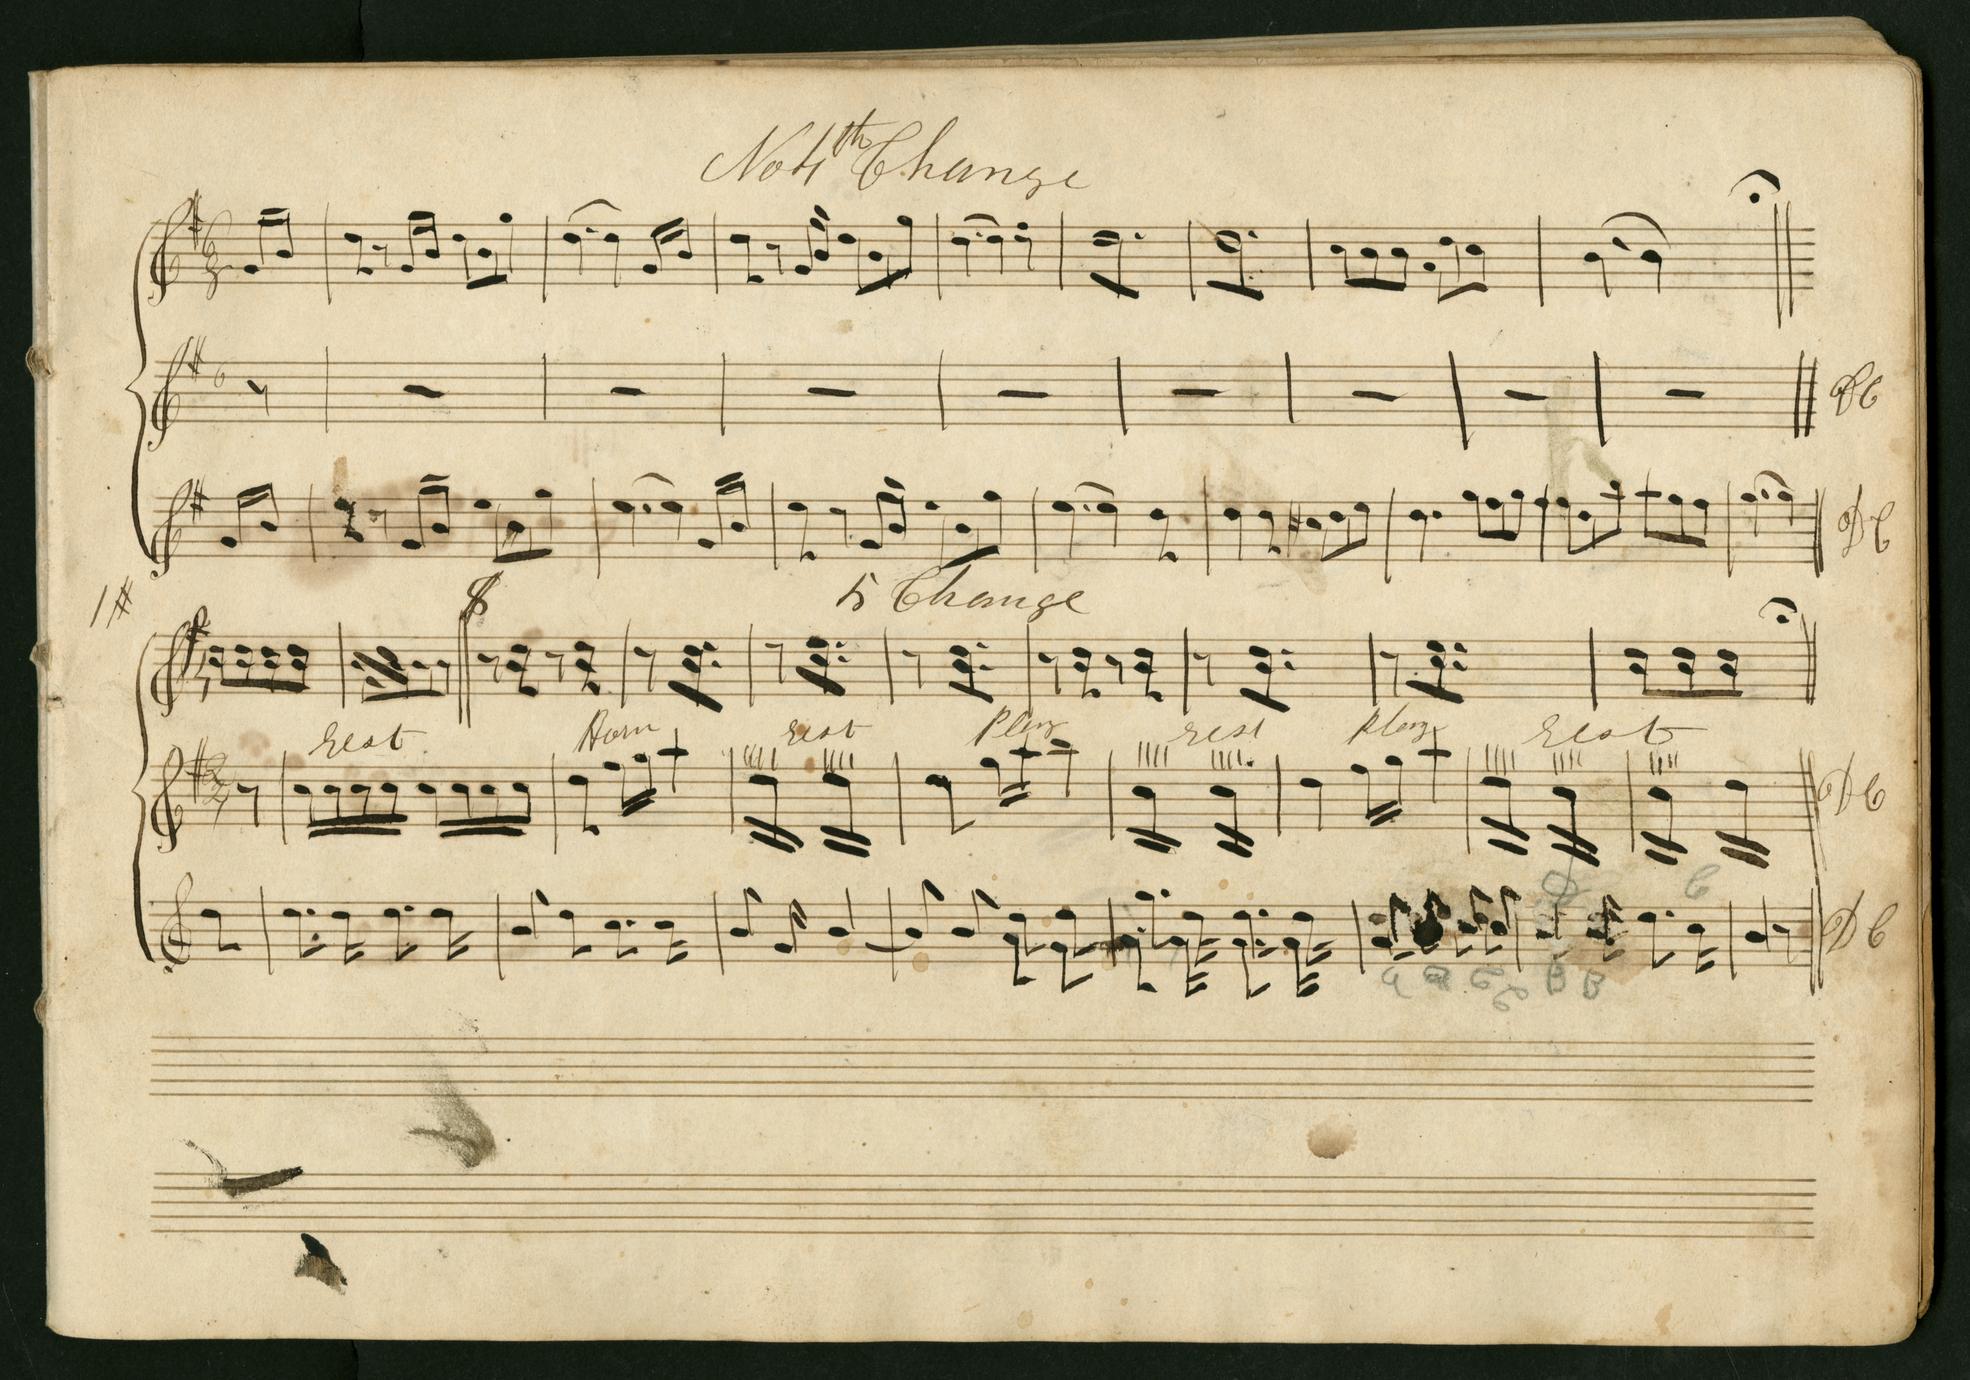 No 4th Change
DC
DC
1#
5 Change
Rest Horn Rest Play Rest Play Rest
DC
C
DC
B B